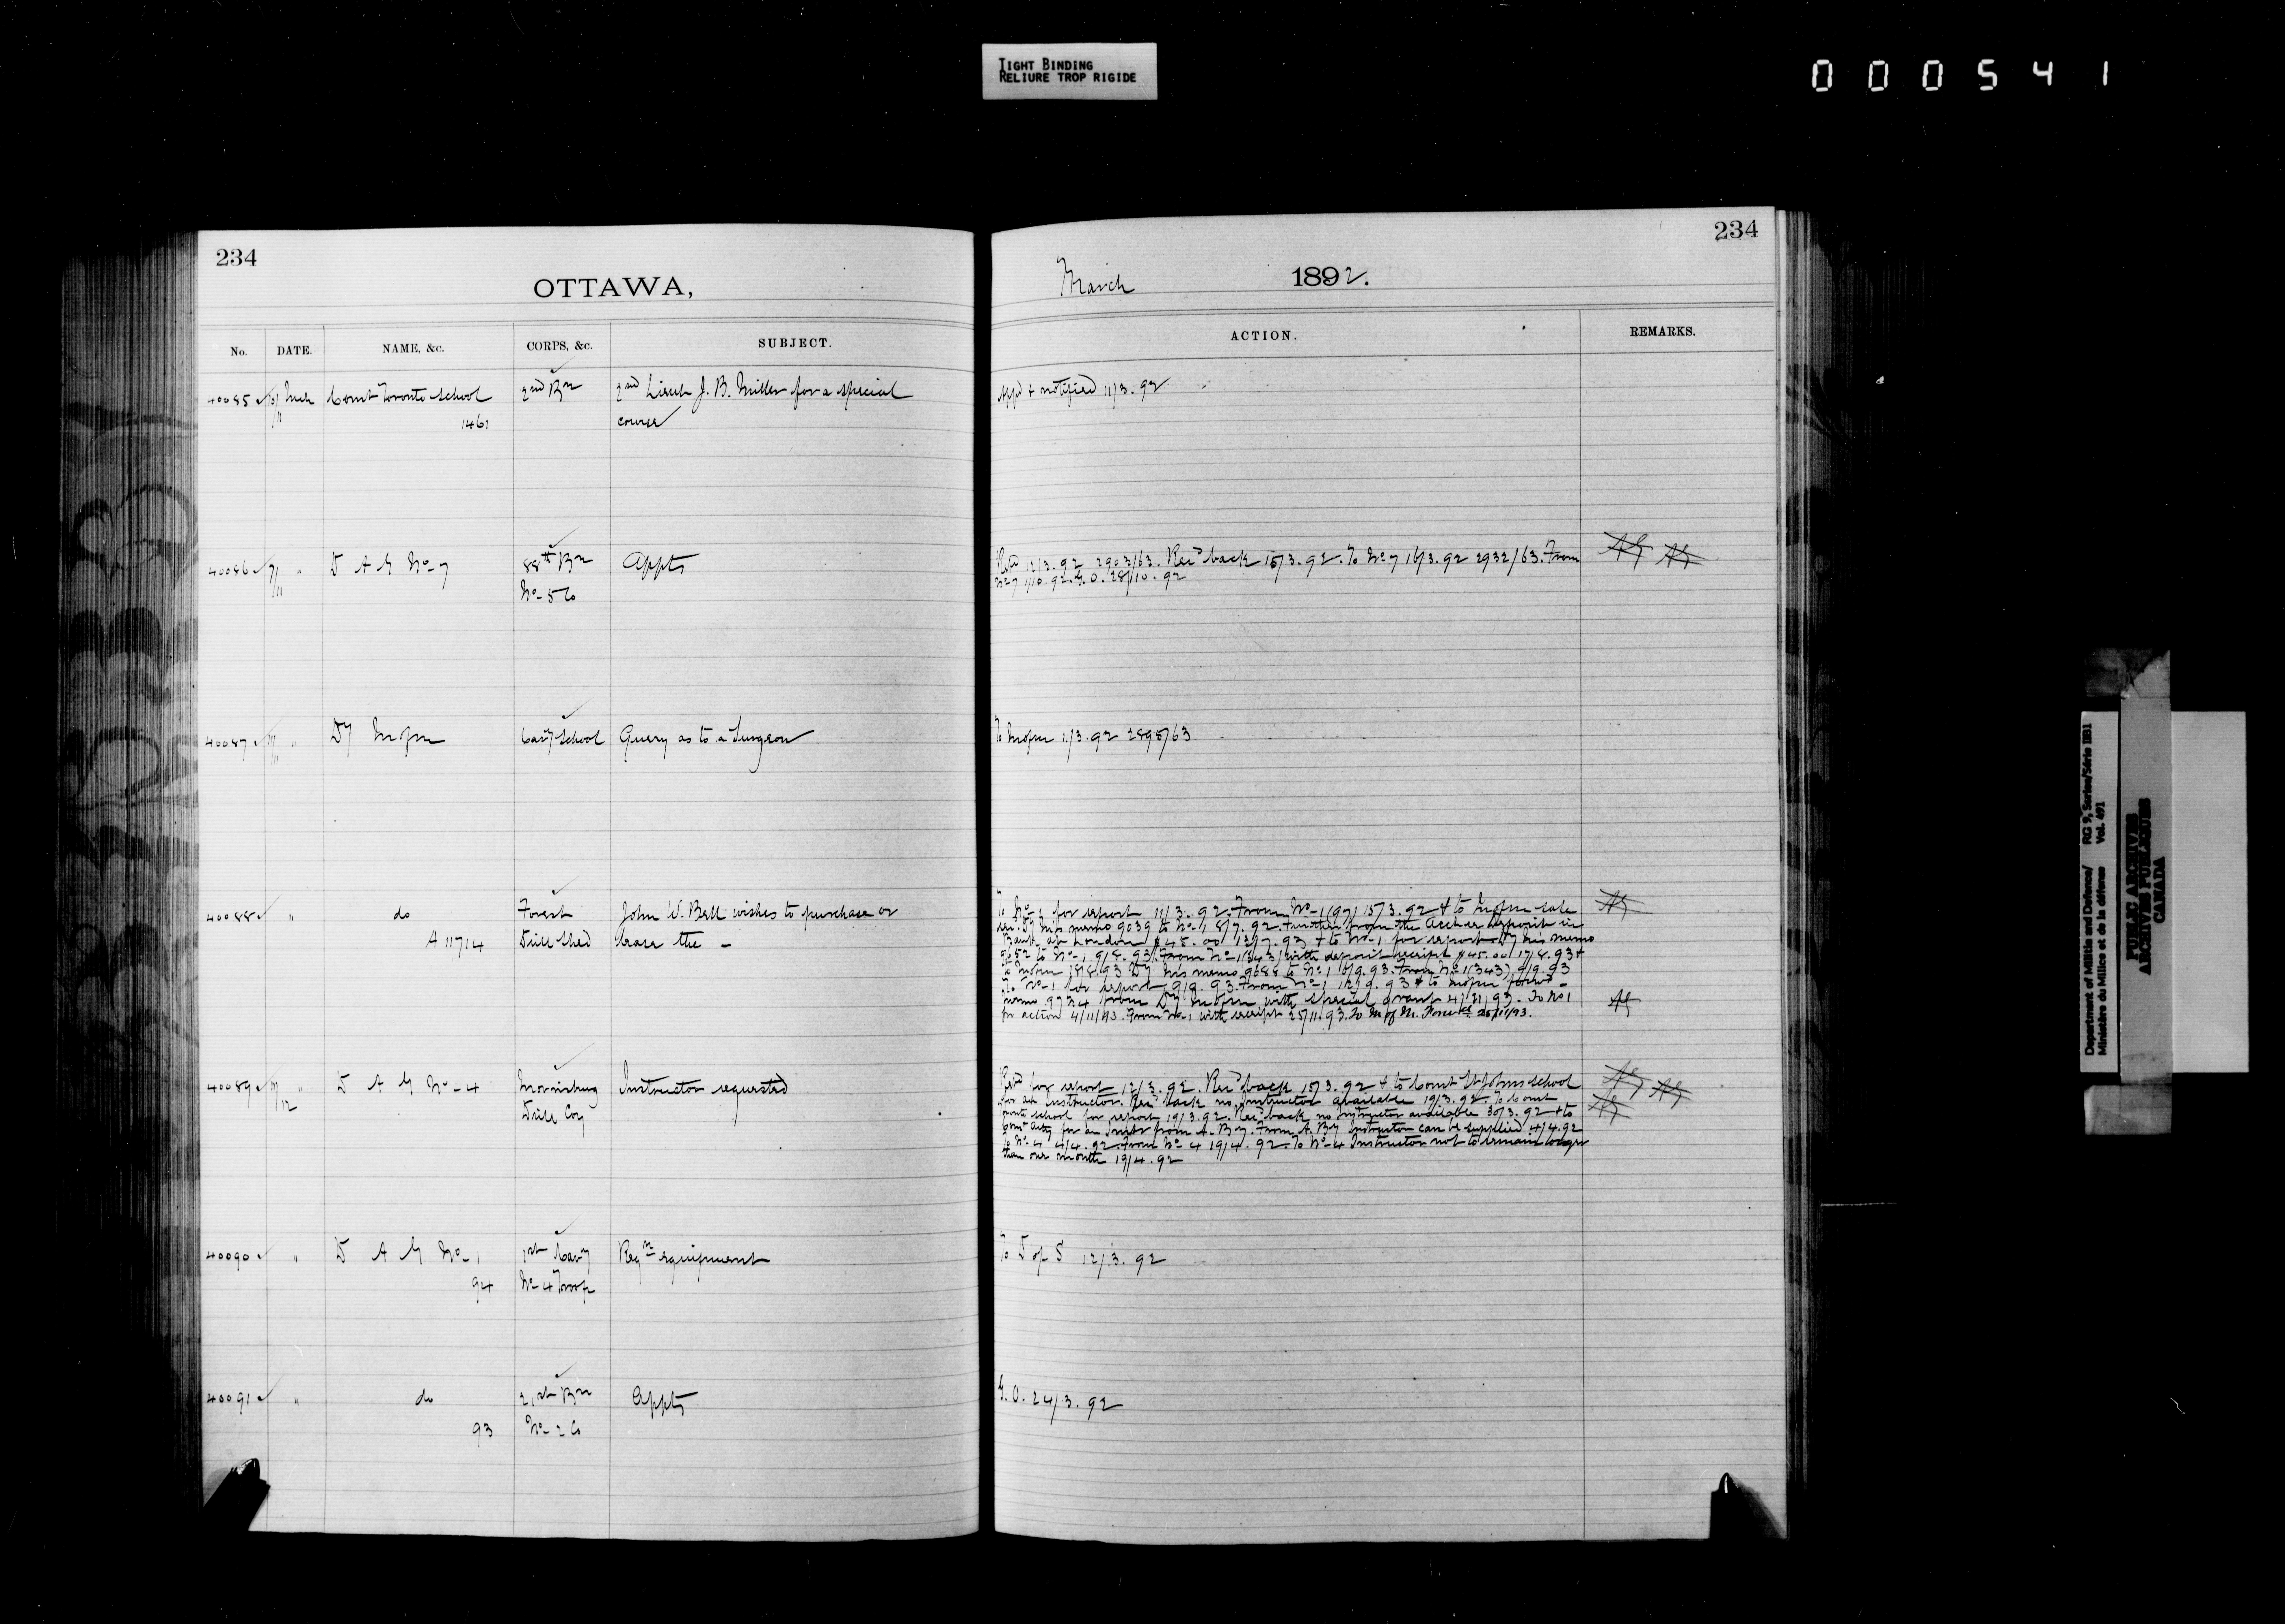 TIGHT BINDING
RELIURE TROP RIGIDE
000541
234
OTTAWA,
No. DATE. NAME, &c. CORPS, &c. SUBJECT.
40085 10/ Mch Comt Toronto School 2nd Bn 2nd Lieut J. B. Miller for a special
11 1461 course
40086 7/ " D A G No-7 88th Bn Appts
11 No-5 Co
40087 " Dy Cavy School Query as to a Surgeon
40088 " do Forest John W. Bell wishes to purchase or
A 11714 Drill Shed lease the -
40089 " D A G No-4 Morrisburg Instructor requested
12 Drill Coy
40090 " D A G No-1 1st Cavy Reqn equipment
94 No-4 Troop
40091 " do 21st Bn Appts
93 No-2 Co
234
March 1892.
ACTION. REMARKS.
Appd & notified 11/3.92
Retd 12/3.92 2903/63. Recd back 15/3.92. To No 7 16/3.92 2932/63. From
No 7 1/10.92. G.O. 28/10.92
To 11/3.92 2898/63
To No-1 for report 11/3.92. From No-1 (97) 15/3.92 & to sale
Dy his memo 9039 to No-1 8/7.92. Further from the
Bank at London $45.00 13/7.93 & to No-1 for report Dy his memo
to No-1 9/8.93. From No-1 (343) with deposit receipt $45.00 17/8.93 &
to 18/8.93 Dy his memo 9088 to No-1 6/9.93. From No 1 (343) 9/9.93
To No-1 for report 9/9.93. From No-1 12/9.93 & to
memo 9234 from Dy with special grant 4/11/93. To No 1
for action 4/11/93. From No-1 with receipt 25/11.93. To M of M. 25/11/93.
Retd for report 12/3.92. Recd back 15/3.92 & to Comt St Johns School
for an Instructor. Recd back no Instructor available 19/3.92. To Comt
Toronto School for report 19/3.92. Recd back no Instructor available 30/3.92 & to
Comt for an Instr from A. By. From A. By Instructor can be supplied 4/4.92
To No-4 4/4.92. From No-4 19/4.92. To No-4 Instructor not to remain longer
than one month 19/4.92
To D of S 12/3.92
G.O. 24/3.92
Department of Militia and Defence/ RG 9, Series/Série IIB1
Ministère du Milice et de la défense Vol. 491
PUBLIC ARCHIVES
ARCHIVES PUBLIQUES
CANADA